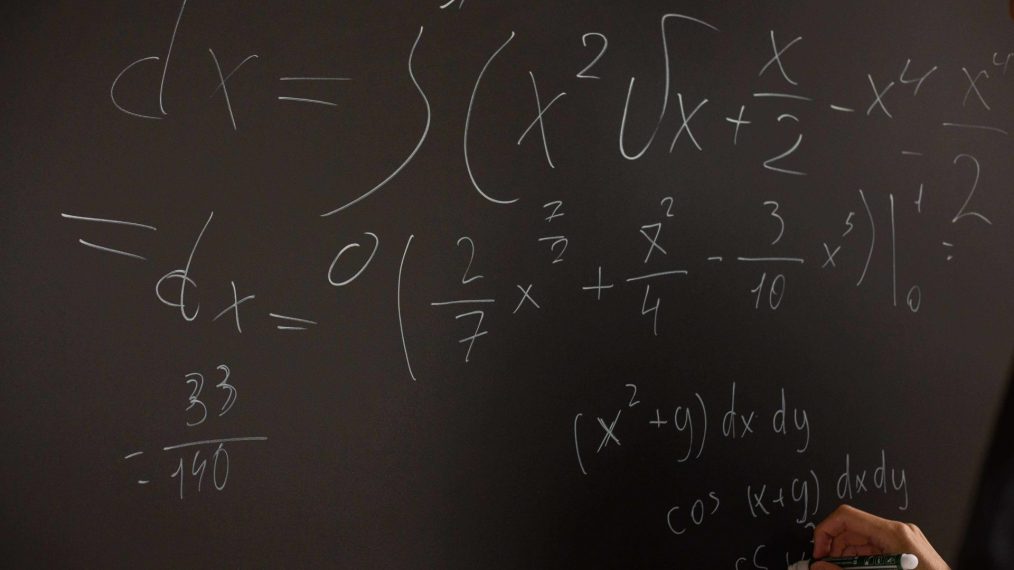 dx = ∫ (x² √x + x/2 - x⁴ - x⁴/2
= dx = 0 (2/7 x^(7/2) + x²/4 - 3/10 x⁵)|₀¹ =
= 33/140
(x² + y) dx dy
cos (x+y) dxdy